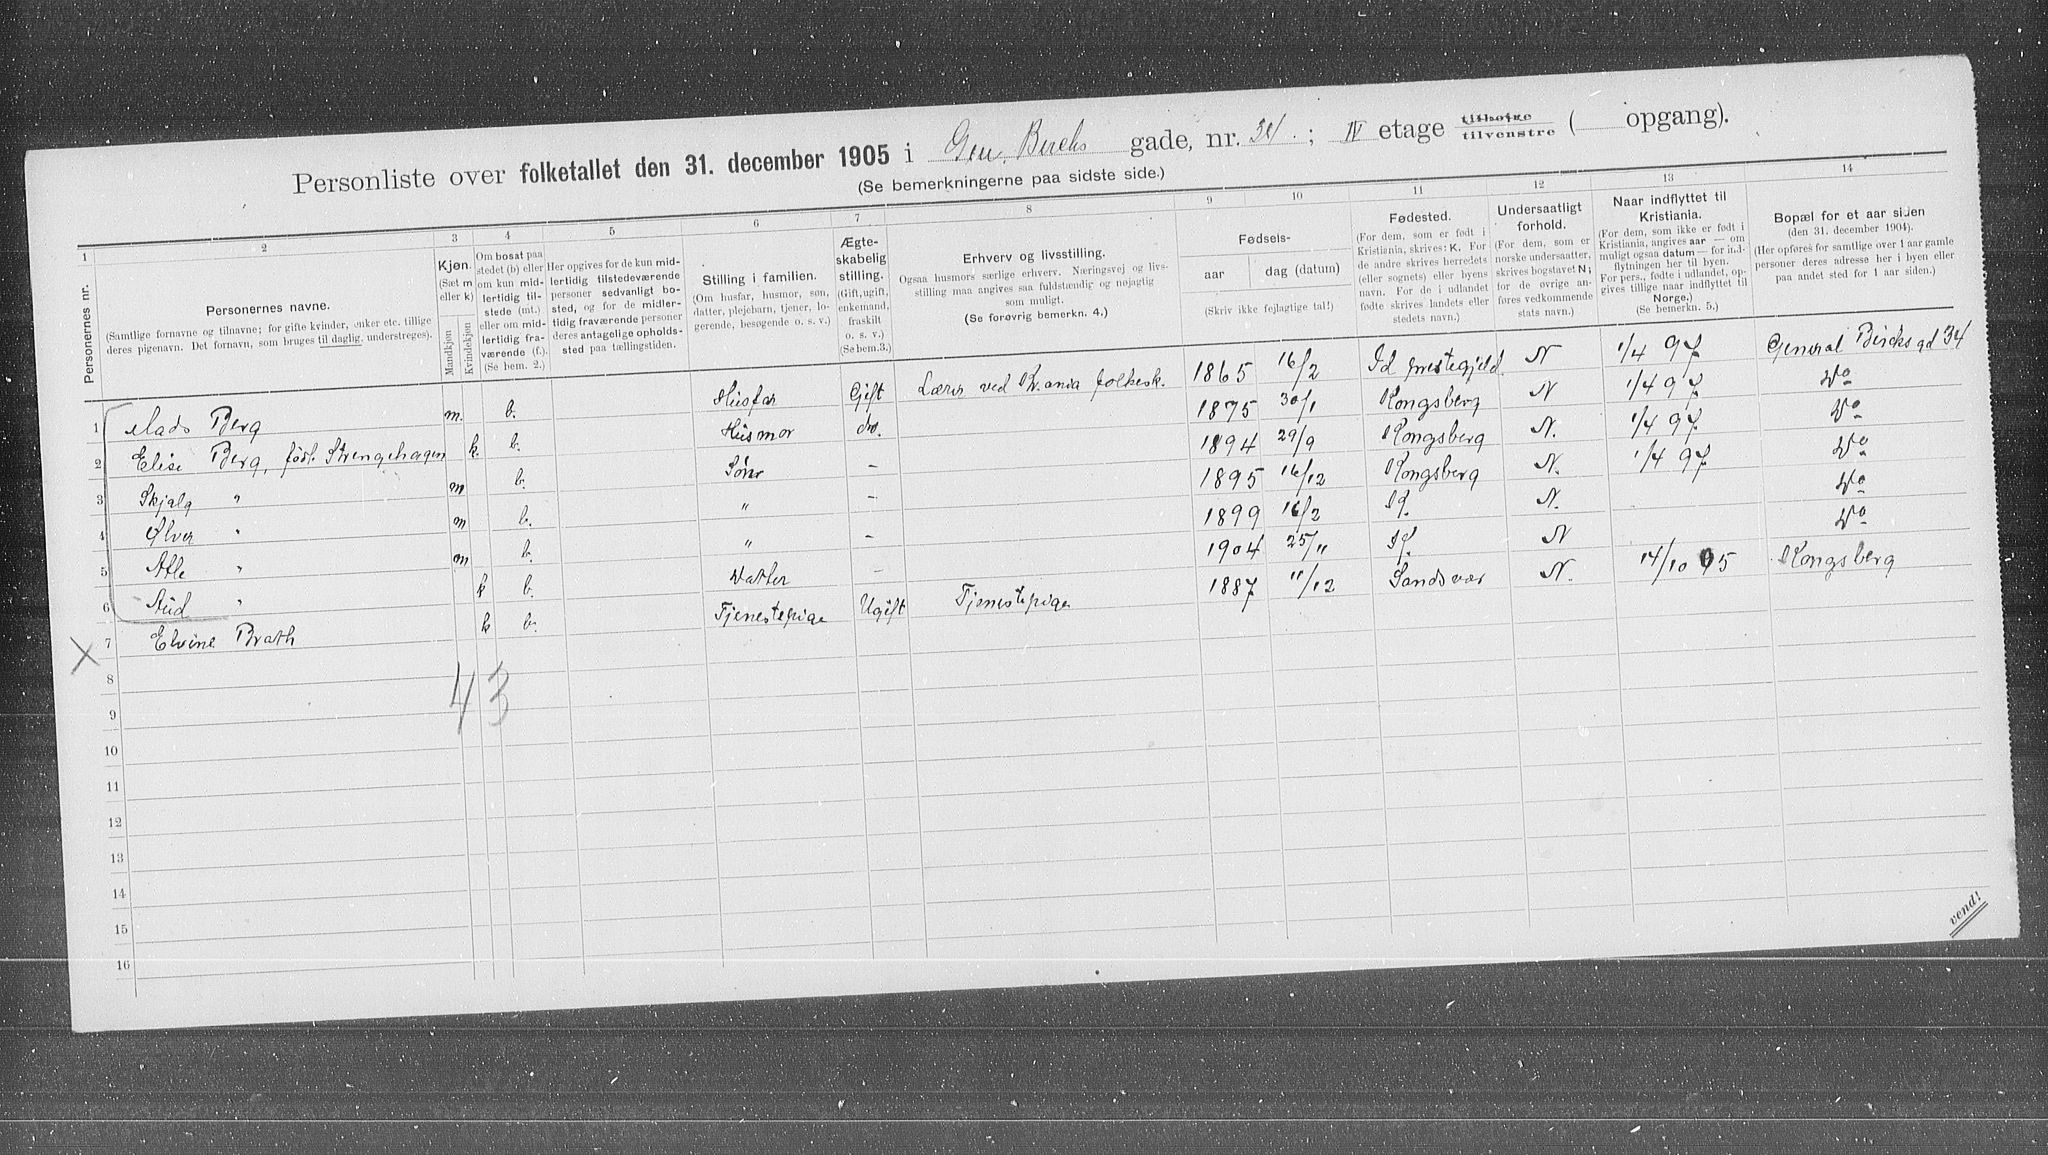 Personliste over folketallet den 31. december 1905 i Gen. Birchs gade, nr. 34. ; IV etage tilhøire tilvenstre ( opgang).
(Se bemerkningerne paa sidste side.)
1 2 3 4 5 6 7 8 9 10 11 12 13 14
Personernes nr.
Personernes navne.
(Samtlige fornavne og tilnavne; for gifte kvinder, enker etc. tillige
deres pigenavn. Det fornavn, som bruges til daglig, understreges).
Kjøn.
(Sæt m
eller k)
Mandkjøn
Kvindekjøn
Om bosat paa
stedet (b) eller
om kun mid-
lertidig til-
stede (mt.)
eller om mid-
lertidig fra-
værende (f.).
(Se bem. 2.)
Her opgives for de kun mid-
lertidig tilstedeværende
personer sedvanligt bo-
sted, og for de midler-
tidig fraværende personer
deres antagelige opholds-
sted paa tællingstiden.
Stilling i familien.
(Om husfar, husmor, søn,
datter, plejebarn, tjener, lo-
gerende, besøgende o. s. v.)
Ægte-
skabelig
stilling.
(Gift, ugift,
enkemand,
fraskilt
o. s. v.)
(Se bem. 3.)
Erhverv og livsstilling.
Ogsaa husmors særlige erhverv. Næringsvej og livs-
stilling maa angives saa fuldstændig og nøjagtig
som muligt.
(Se forøvrig bemerkn. 4.)
Fødsels-
aar dag (datum)
(Skriv ikke fejlagtige tal!)
Fødested.
(For dem, som er født i
Kristiania, skrives: K. For
de andre skrives herredets
(eller sognets) eller byens
navn. For de i udlandet
fødte skrives landets eller
stedets navn.)
Undersaatligt
forhold.
(For dem, som er
norske undersaatter,
skrives bogstavet N;
for de øvrige an-
føres vedkommende
stats navn.)
Naar indflyttet til
Kristiania.
(For dem, som ikke er født i
Kristiania, angives aar — om
muligt ogsaa datum — for ind-
flytningen her til byen.
For pers., fødte i udlandet, op-
gives tillige naar indflyttet til
Norge.)
(Se bemerkn. 5.)
Bopæl for et aar siden
(den 31. december 1904).
(Her opføres for samtlige over 1 aar gamle
personer deres adresse her i byen eller
paa andet sted for 1 aar siden.)
1 Mads Berg m. b. Husfar Gift Lærer ved Kr.ania folkesk. 1865 16/2 Id prestegjeld N 1/4 97 General Bircks gd 34
2 Elise Berg, født Strengehagen k. b. Husmor do. 1875 30/1 Kongsberg N 1/4 97 Do
3 Skjalg " m b. Søn — 1894 29/9 Kongsberg N. 1/4 97 Do
4 Ølver " m b. " — 1895 16/12 Kongsberg N. 1/4 97 Do
5 Atle " m b. " — 1899 16/2 K. N. Do
6 Aud " k b. Datter — 1904 25/11 K. N Do
7 Elvine Brath k b. Tjenestepige Ugift Tjenestepige 1887 11/12 Sandsvær N. 14/10 05 Kongsberg
X
8
4 3
9
10
11
12
13
14
15
16
vend!